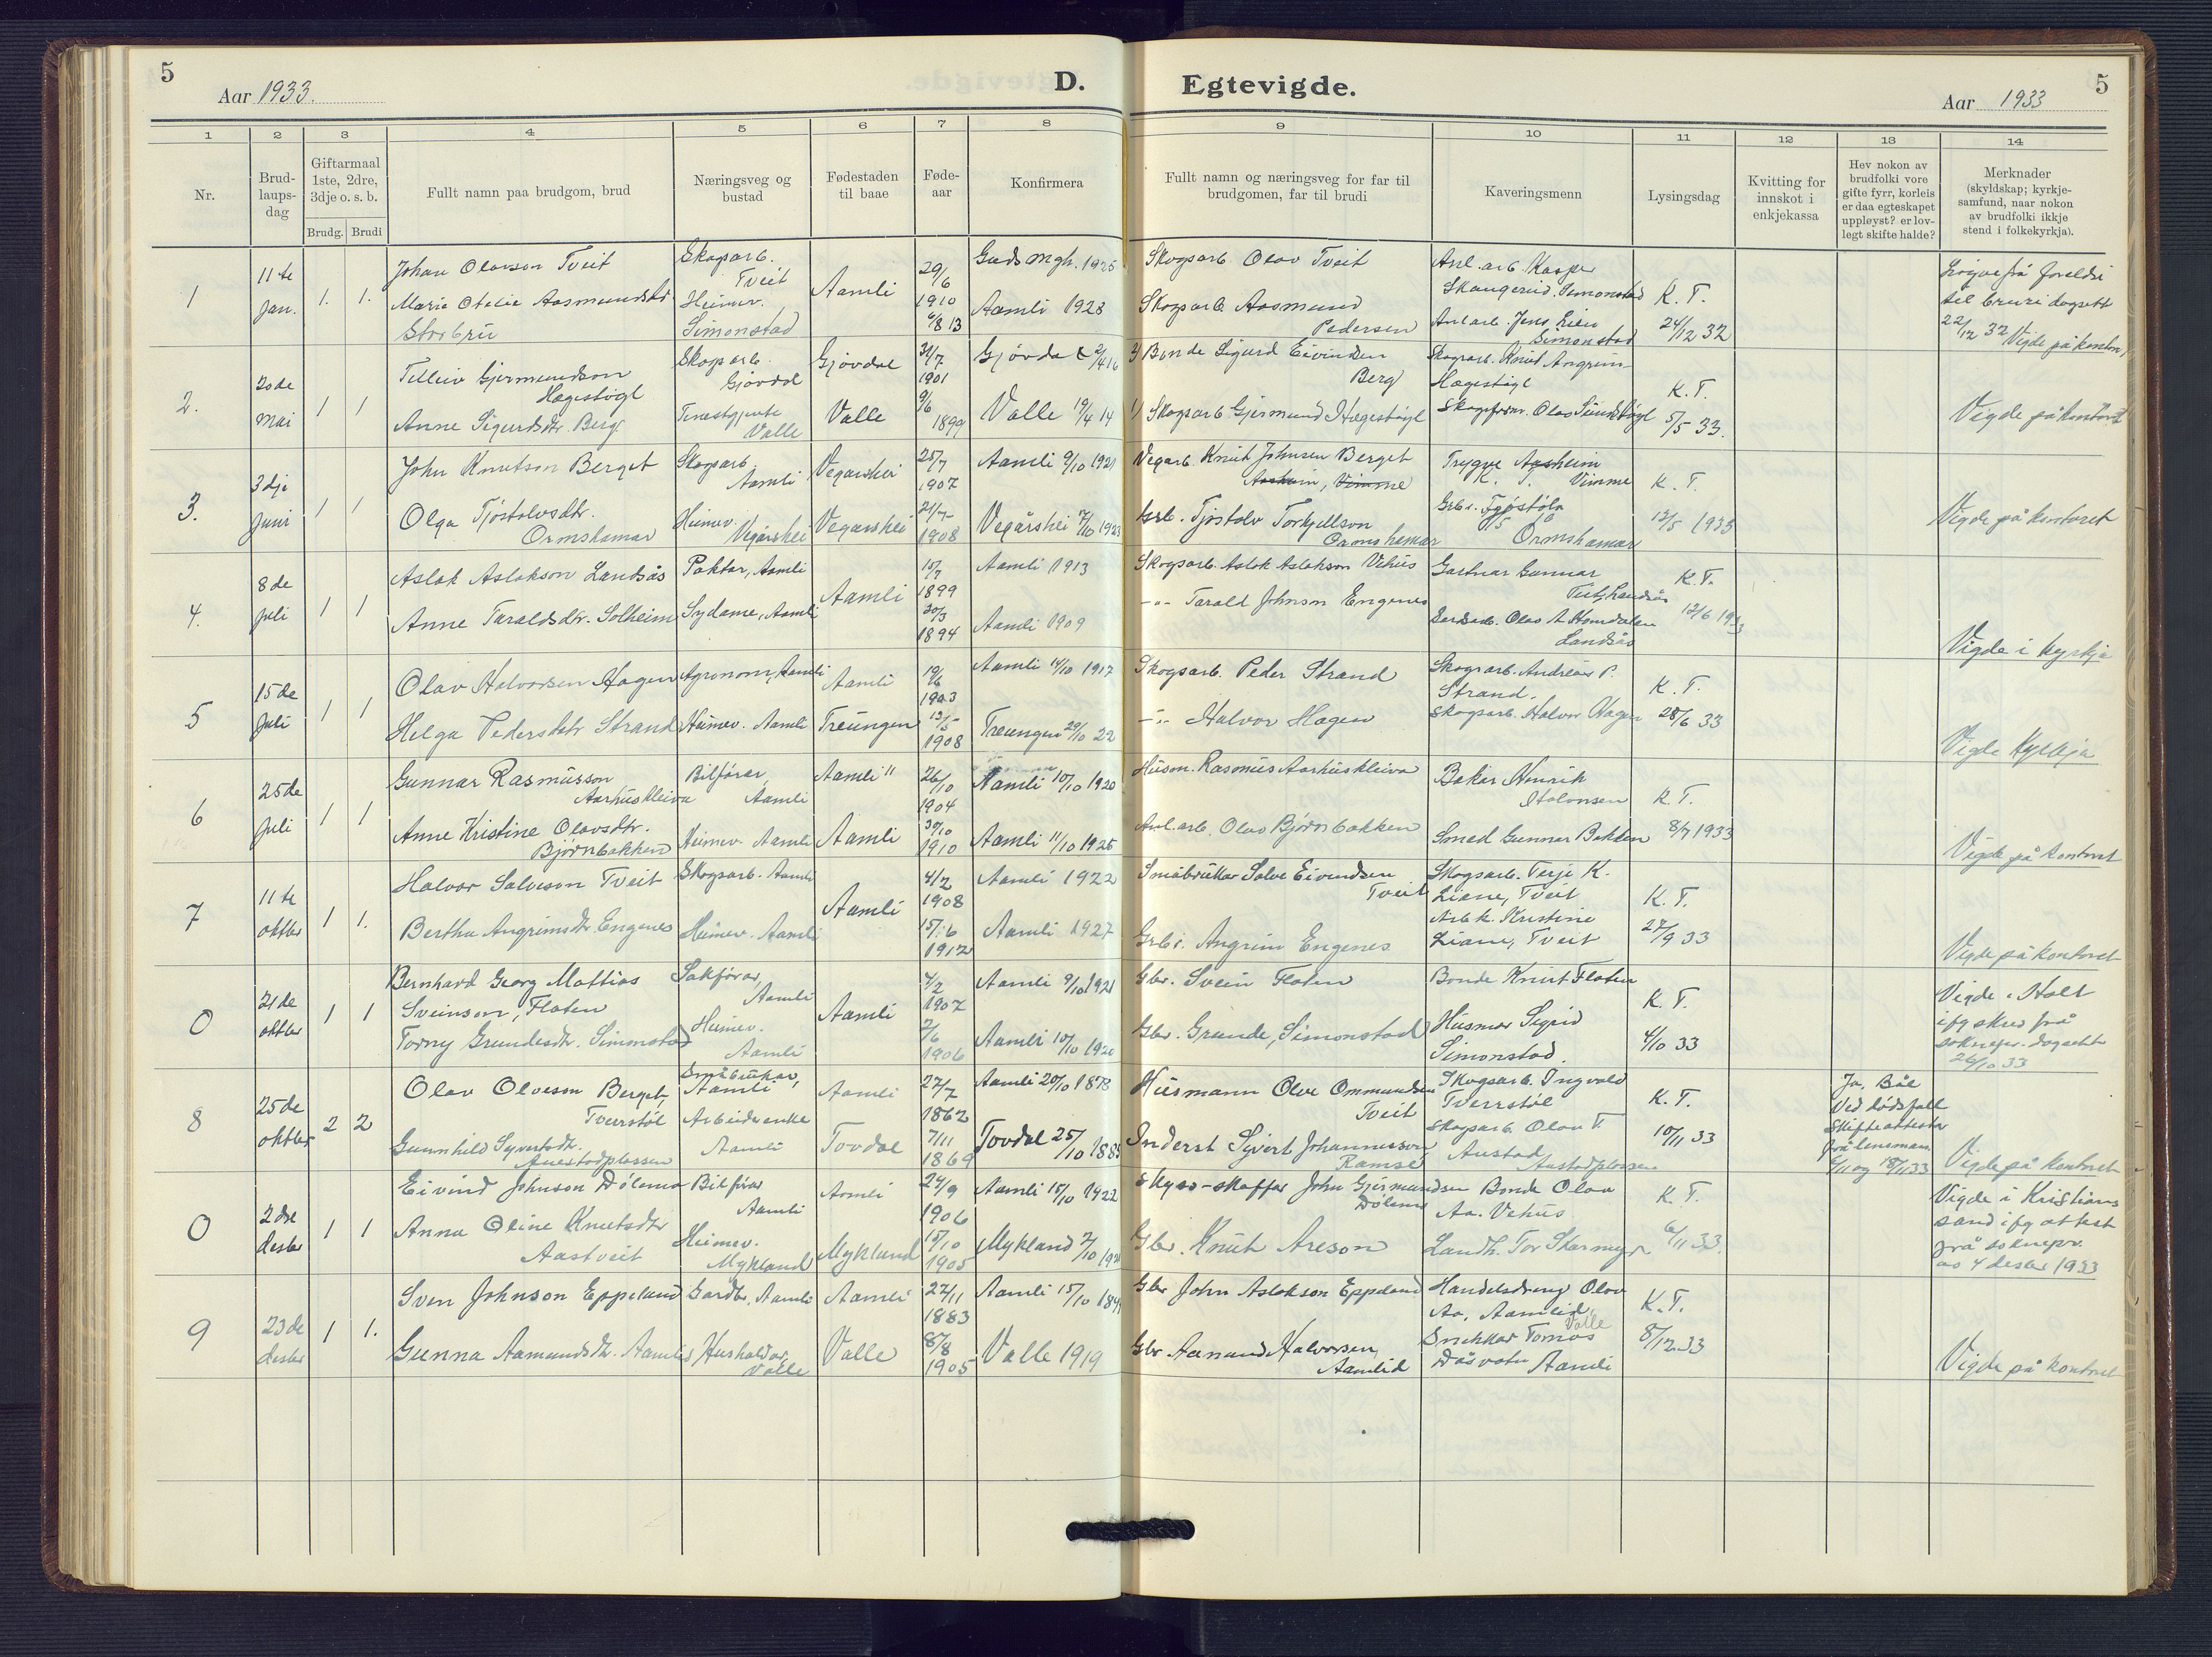 5
Aar 1933.
D.
Egtevigde.
Aar 1933
5
1 2 3 4 5 6 7 8 9 10 11 12 13 14
Nr.
Brud-
laups-
dag
Giftarmaal
1ste, 2dre,
3dje o. s. b.
Brudg. Brudi
Fullt namn paa brudgom, brud
Næringsveg og
bustad
Fødestaden
til baae
Føde-
aar
Konfirmera
Fullt namn og næringsveg for far til
brudgomen, far til brudi
Kaveringsmenn
Lysingsdag
Kvitting for
innskot i
enkjekassa
Hev nokon av
brudfolki vore
gifte fyrr, korleis
er daa egteskapet
uppløyst? er lov-
legt skifte halde?
Merknader
(skyldskap; kyrkje-
samfund, naar nokon
av brudfolki ikkje
stend i folkekyrkja).
1
11te
Jan.
1. 1.
Johan Olavson Tveit
Marie Otelie Aasmundsdtr
Storbru
Skogsarb.
Tveit
Heimev.
Simonstad
Aamli
29/6
1910
6/8 13
Guds mgh. 1925
Aamli 1928
Skogsarb. Olav Tveit
Skogsarb Aasmund
Pedersen
Anl. arb. Kasper
Skaugerud, Simonstad
Anl arb. Jens Eieu
Simonstad
K. T.
24/12 32
Løyve frå foreldri
til bruri dagsett
22/12 32 Vigde på kontor
2.
20de
mai
1 1
Telleiv Gjermundson
Hægestøyl
Anne Sigurdsdtr. Berg
Skogsarb.
Gjøvdal
Tenestgjente
Valle
Gjøvdal
Valle
31/7
1901
9/6
1899
Gjövdal 2/4 16
Valle 19/4 14
2) Bonde Sigurd Eivindsen
Berg
1) Skogsarb Gjermund Hægestøyl
Skogsarb. Knut Angrim-
Hægestøyl
Skogsform. Olav Sundstøyl
K. T.
5/5 33.
Vigde på kontoret
3.
3dje
Juni
1 1
John Knutson Berget
Olga Tjøstolvsdtr.
Ormshamar
Skogsarb
Aamli
Heimev.
Vegårshei
Vegarshei
Vegarshei
25/7
1907
21/7
1908
Aamli 9/10 1921
Vegårshei 7/10 1923
Vegarb. Knut Johnsen Berget
Aasheim, Vimme
Grb. Tjøstolv Torkjellson
Ormshamar
Trygve Aasheim
K. T. Vimme
Grb. Tjøstolv
Ormshamar
K. T.
12/5 1933
Vigde på kontoret
4.
8de
juli
1 1
Aslak Aslakson Landsås
Anne Taraldsdtr. Solheim
Paktar, Aamli
Sydame, Aamli
Aamli
10/7
1899
30/3
1894
Aamli 1913
Aamli 1909
Skogsarb. Aslak Aslakson Vehus
-"- Tarald Johnson Engenes
Gartnar Gunnar
Landsås
Olav A Homdalen
Landsås
K. T.
12/6 1933
Vigde i kyrkja
5
15de
Juli
1 1
Olav Halvorsen Hagen
Helga Pedersdtr Strand
Agronom, Aamli
Heimev. Aamli
Aamli
Treungen
19/6
1903
13/5
1908
Aamli 14/10 1917
Treungen 29/10 22
Skogsarb. Peder Strand
-"- Halvor Hagen
Skogsarb. Andreas P.
Strand.
Skogsarb. Halvor Hagen
K. T.
28/6 33
Vigde Kyrkja
6
25de
Juli
1 1
Gunnar Rasmusson
Aarhuskleiva
Anne Kristine Olavsdtr.
Bjørnbakken
Bilførar,
Aamli
Heimev. Aamli
Aamli
Aamli
26/10
1904
30/10
1910
Aamli 10/10 1920
Aamli 11/10 1925
Husm. Rasmus Aarhuskleiva
Anl. arb. Olav Bjørnbakken
Bakar Henrik
Halvorsen
Smed Gunnar Bakken
K. T.
8/7 1933
Vigde på kontoret
7
11te
oktbr
1 1.
Halvor Salveson Tveit
Bertha Angrimsdtr Engenes
Skogsarb. Aamli
Heimev. Aamli
Aamli
4/2
1908
15/6
1912
Aamli 1922
Aamli 1927
Småbrukar Salve Eivindsen
Tveit
Grb. Angrim Engenes
Skogsarb. Terje K.
Liane, Tveit
Arb.k. Kristine
Liane, Tveit
K. T.
27/9 33
Vigde på kontoret
0
21de
oktbr
1 1
Bernhard Georg Mattias
Sveinson, Flaten
Torny Grundesdtr. Simonstad
Sakførar,
Aamli
Heimev.
Aamli
Aamli
4/2
1907
2/6
1906
Aamli 9/10 1921
Aamli 10/10 1920
Gbr. Svein Flaten
Gbr. Grunde Simonstad
Bonde Knut Flaten
Husmor Sigrid
Simonstad.
K. T.
4/10 33
Vigde i Holt
ifg skriv frå
soknepr. dagsett
26/10 33
8
25de
oktbr
2 2
Olav Olveson Berget,
Tverrstøl
Gunnhild Syvertsdtr.
Austadplassen
Småbrukar,
Aamli
Arbeiderenke
Aamli
Aamli
Tovdal
27/7
1862
7/11
1869
Aamli 20/10 1878
Tovdal 25/10 1885
Husmann Olve Ommundsen
Tveit
Inderst Syvert Johannesson
Ramse
Skogsarb. Ingvald
Tverrstøl
Skogsarb Olav T.
Austad
Austadplassen
K. T.
10/11 33
Ja, Båe
Ved dødsfall
Skifteattestar
frå lensmann
6/11 og 18/11 33
Vigde på kontoret
0
2dre
desbr
1 1
Eivind Johnson Dølemo
Anna Oline Knutsdtr
Aastveit
Bilførar
Aamli
Heimev.
Mykland
Aamli
Mykland
24/9
1906
15/10
1905
Aamli 15/10 1922
Mykland 2/10 1921
Skyss-skaffar John Gjermundsen
Dølemo
Gbr. Knut Areson
Bonde Olav
Aa. Vehus
Landh. Tor Skarmyr
K. T.
6/11 33.
Vigde i Kristians
sand ifg attest
frå soknepr.
av 4 desbr 1933
9
23de
desbr
1 1.
Sven Johnson Eppeland
Gunna Aamundsdtr. Aamlid
Gardbr, Aamli
Hushaldar,
Valle
Aamli
Valle
27/11
1883
8/8
1905
Aamli 15/10 1899
Valle 1919
Gbr John Aslakson Eppeland
Gbr Aanund Halvorsen
Aamlid
Handelsdreng Olav
Aa. Aamlid,
Valle
Snekkar Tomas
Dåsvatn Aamli
K. T.
8/12 33
Vigde på kontoret